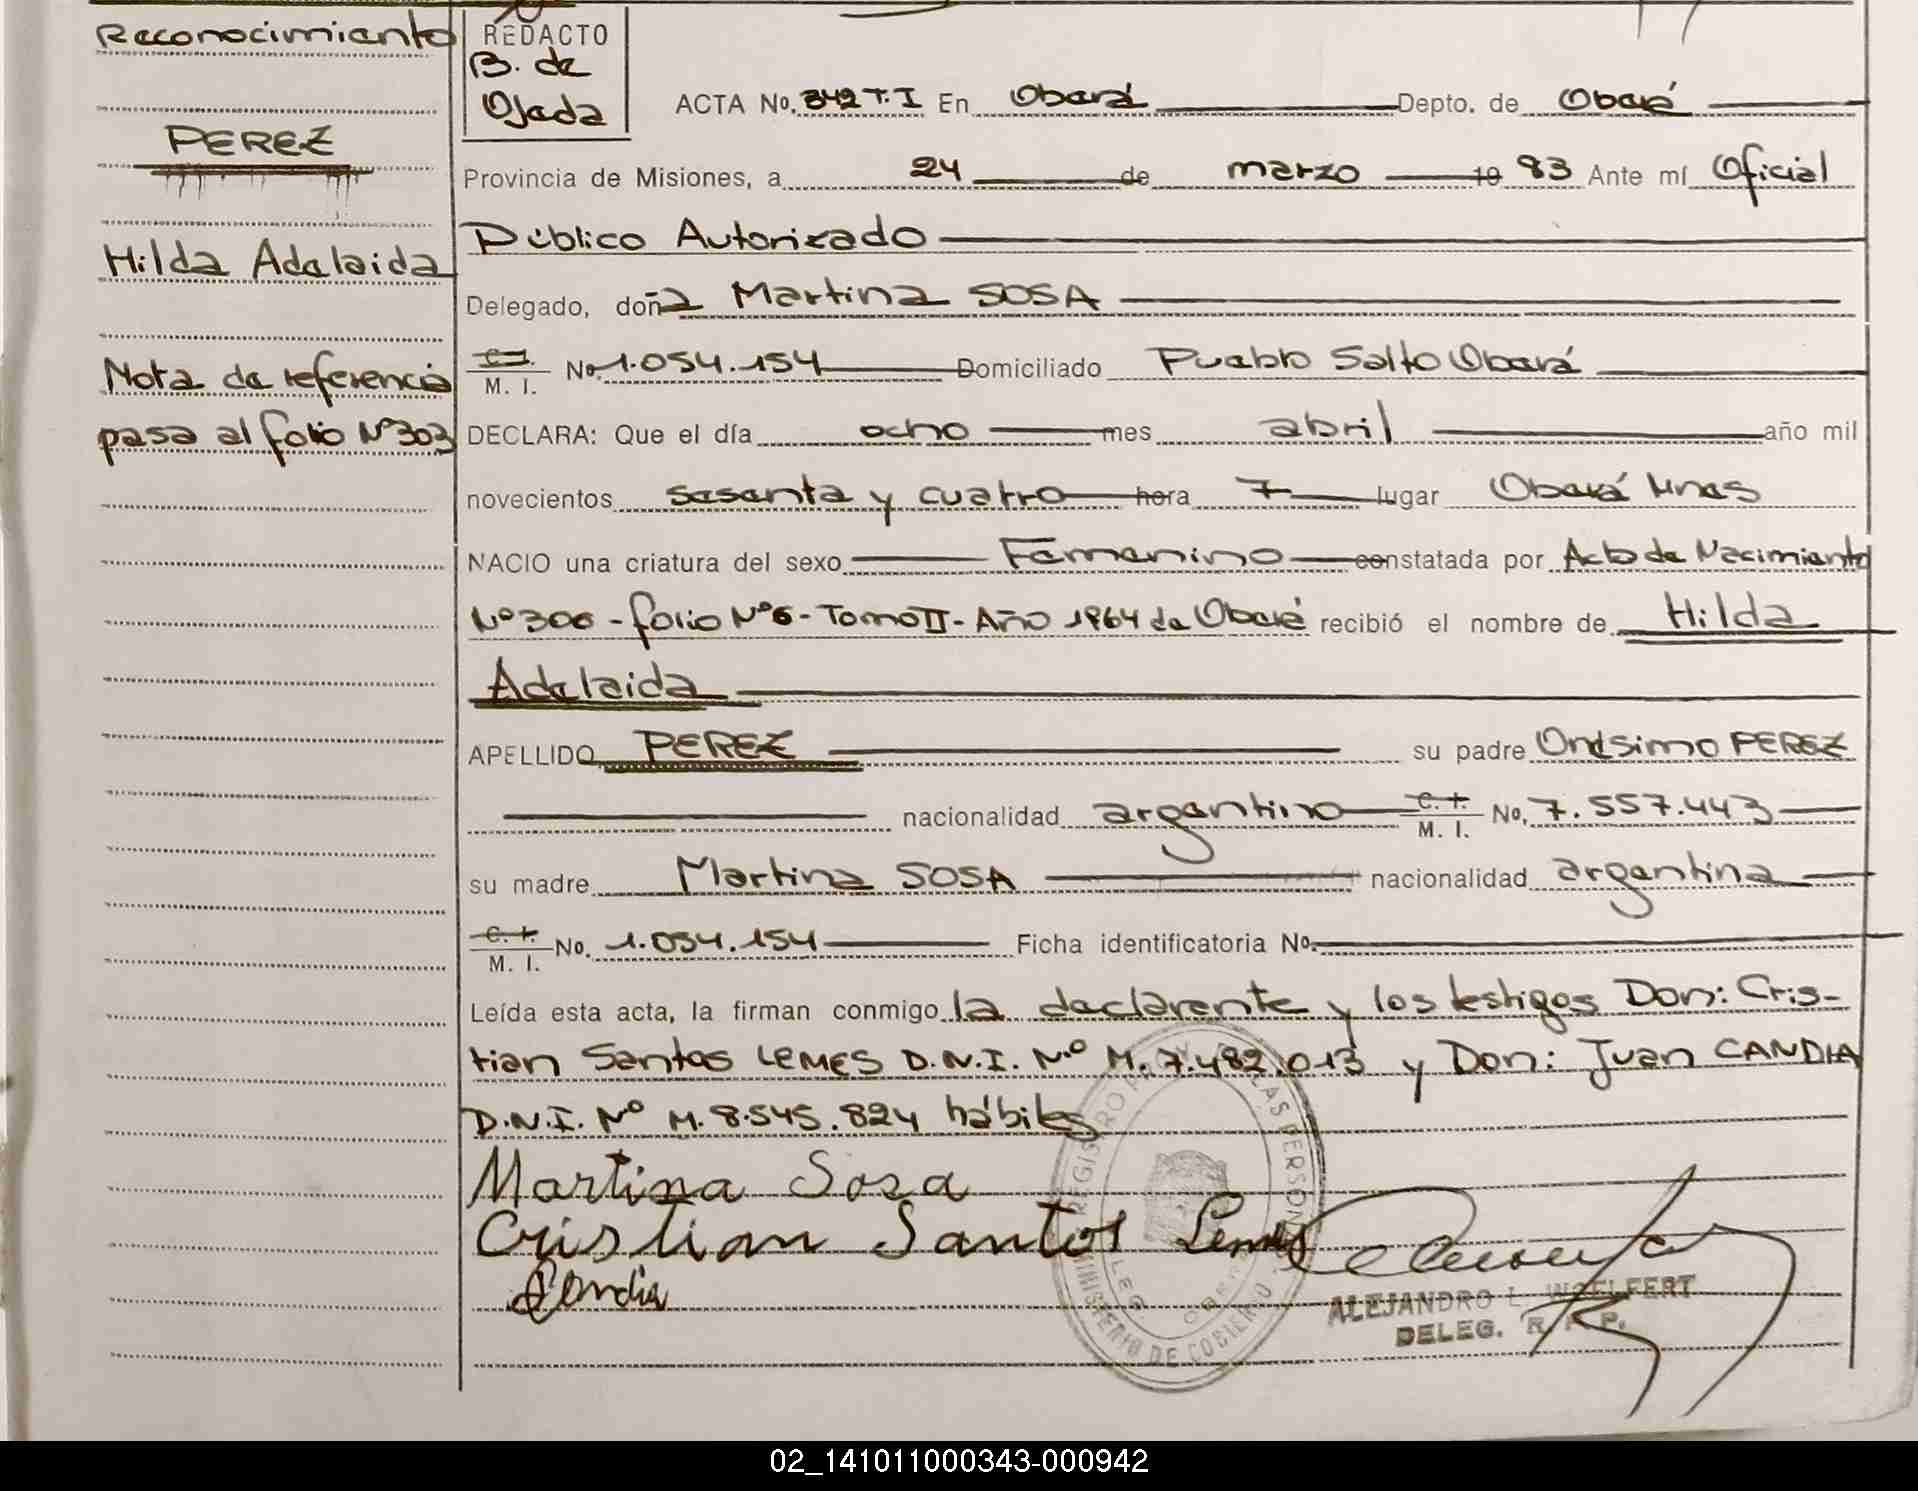 Reconocimiento
PEREZ
Hilda Adelaida
Nota de referencia
pasa al folio Nº303
REDACTO
B. de
Ojeda
ACTA No. 342 T.I En Oberá Depto. de Oberá
Provincia de Misiones, a 24 de marzo 19 83 Ante mí Oficial
Público Autorizado
Delegado, doña Martina SOSA
C.I. M. I. No. 1.054.154 Domiciliado Pueblo Salto Oberá
DECLARA: Que el día ocho mes abril año mil
novecientos sesenta y cuatro hora 7 lugar Oberá Mnes
NACIO una criatura del sexo Femenino constatada por Acta de Nacimiento
Nº 306 - folio Nº6 - Tomo II - Año 1964 de Oberá recibió el nombre de Hilda
Adelaida
APELLIDO PEREZ su padre Onésimo PEREZ
nacionalidad argentino C. I. M. I. No. 7.557.443
su madre Martina SOSA nacionalidad argentina
C. I. M. I. No. 1.054.154 Ficha identificatoria No.
Leída esta acta, la firman conmigo la declarente y los testigos Don: Cris-
tian Santos LEMES D.N.I. N.º M. 7.482.013 y Don: Juan CANDIA
D.N.I. Nº M. 8.545.824 hábiles
Martina Sosa
Cristian Santos Lemes
Candia
REGISTRO DE LAS PERSONAS
MINISTERIO DE GOBIERNO
DELEG. OBERA
ALEJANDRO L. WOELFERT
DELEG. R. P. P.
02_141011000343-000942